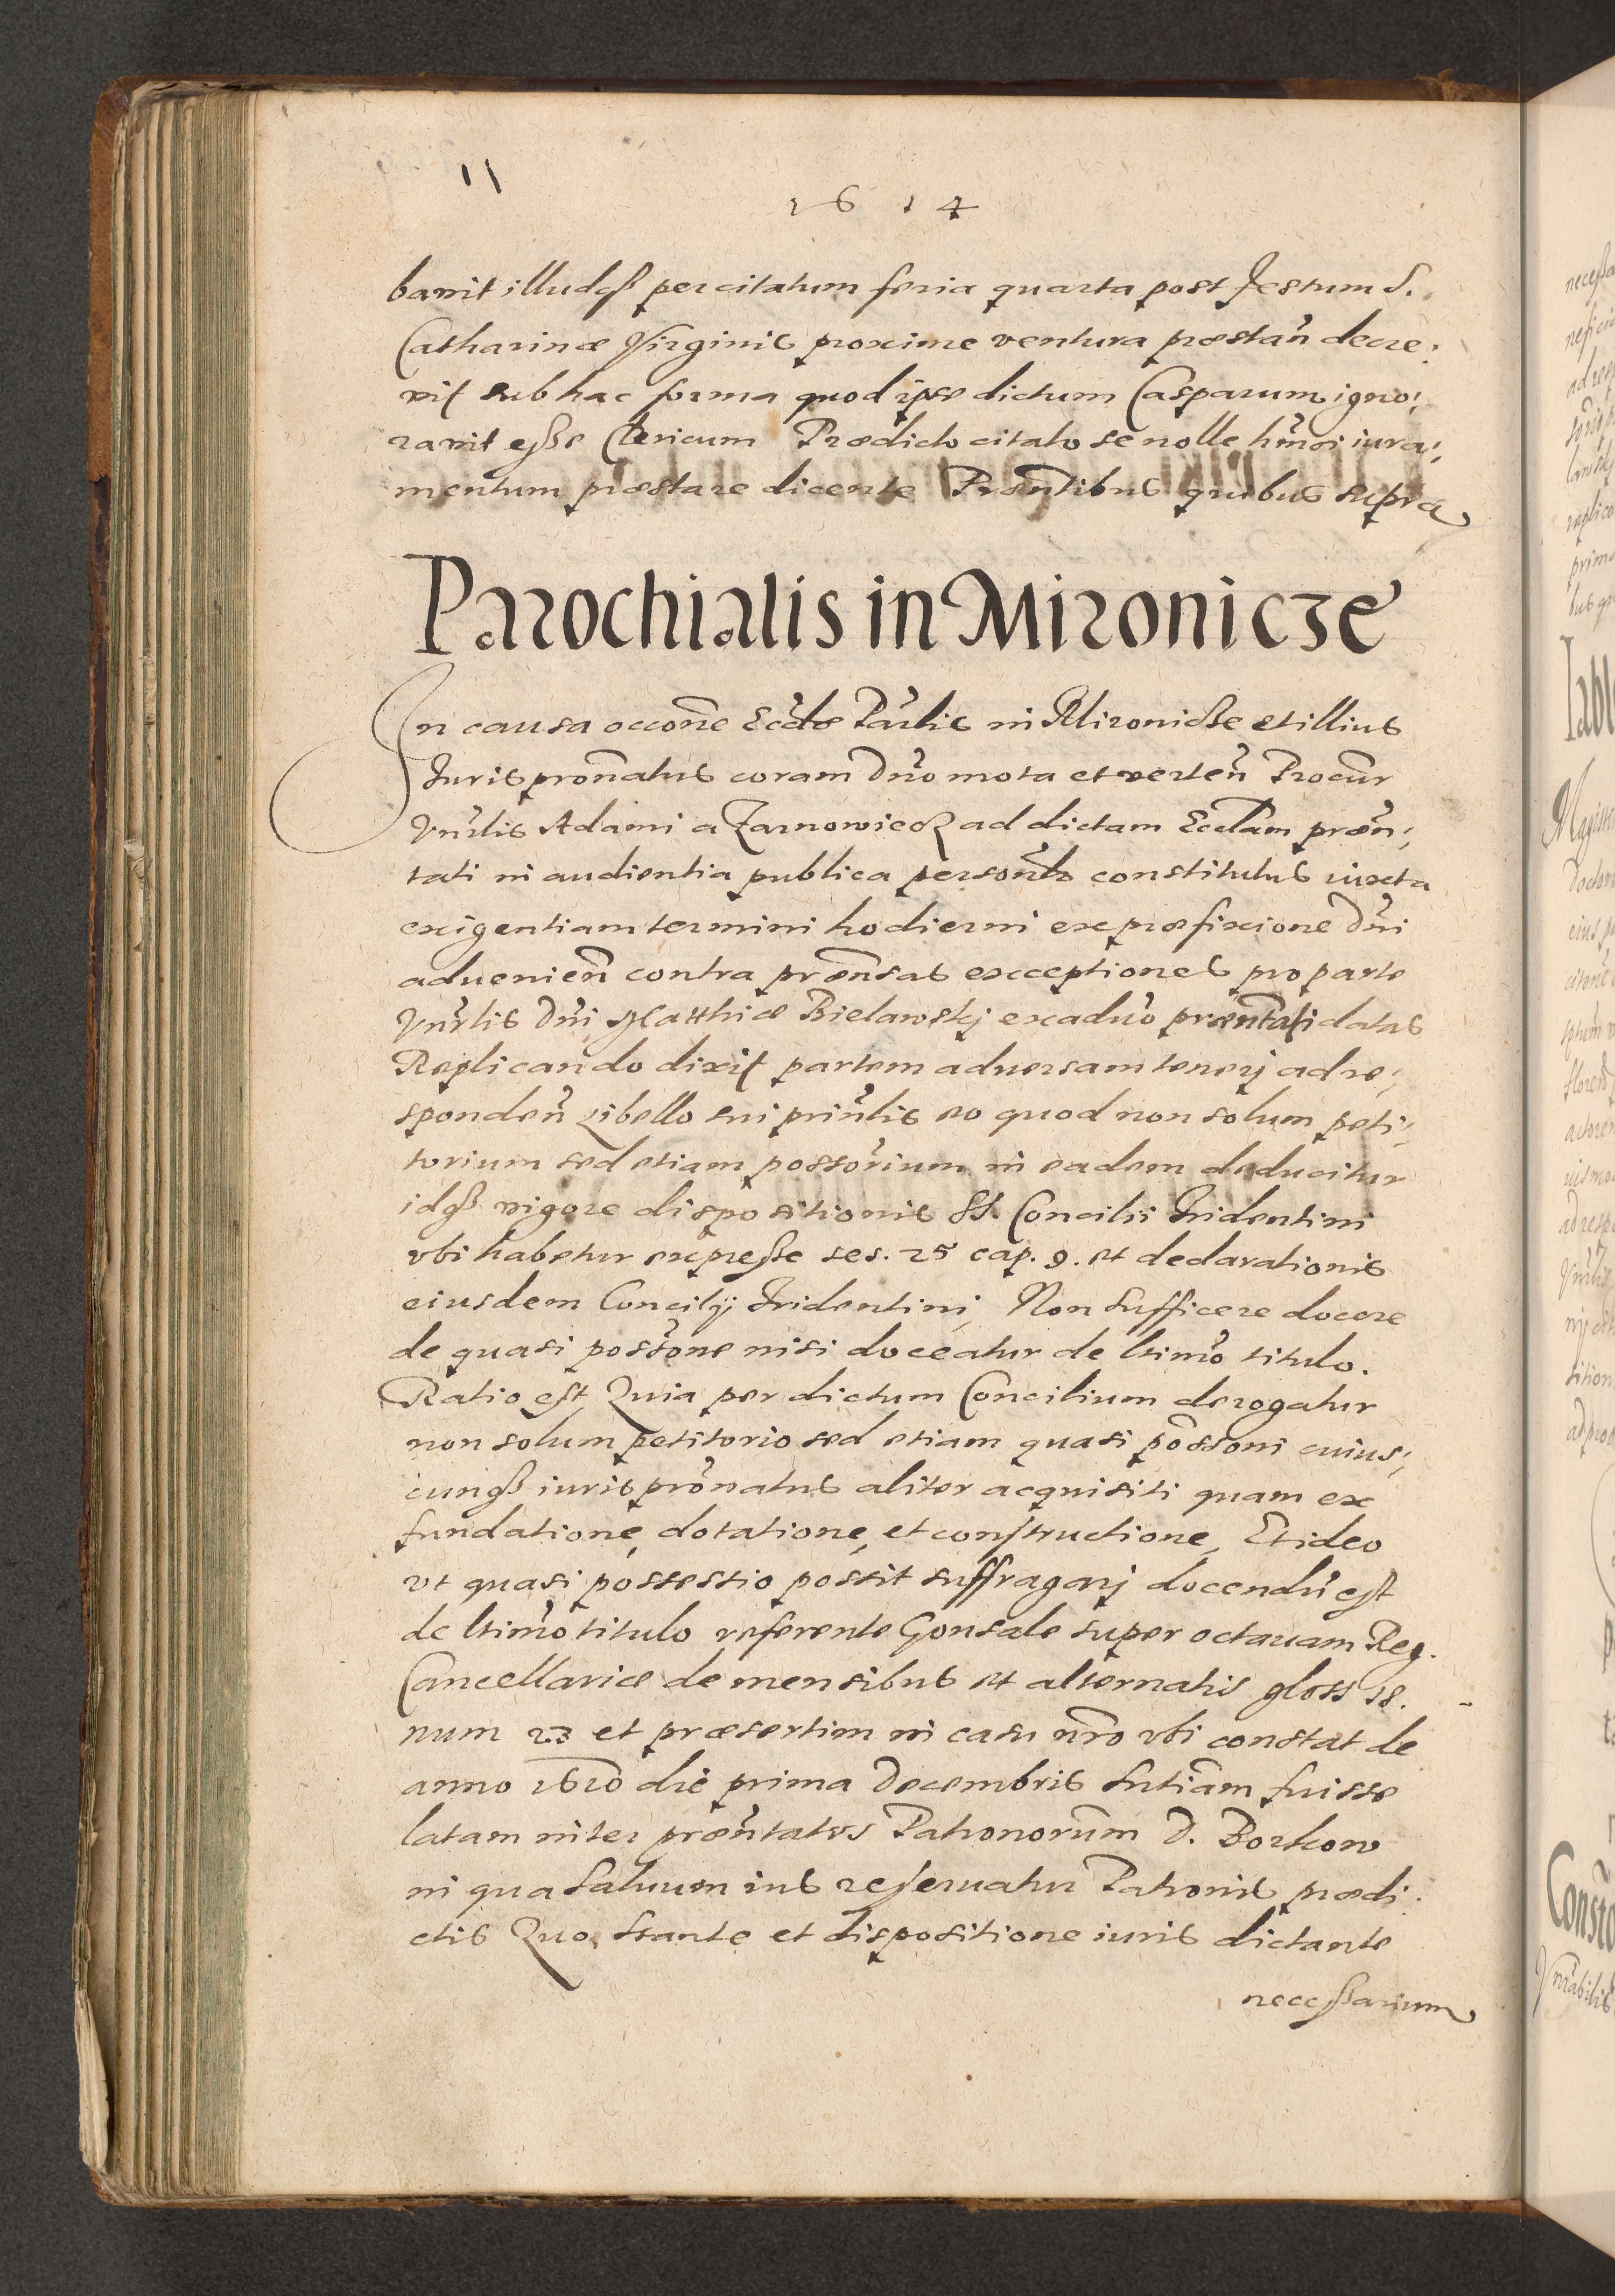 1614
bavit illudq̃ per citatum feria quarta post Festum S.
Catharinæ Virginis proxime ventura præstan̄ decre:
vit sub hac forma quod ipse dictum Casparum igno:
ravit esse Clericum Prædicto citato se nolle hm̄oi iura:
mentum præstare dicente Præn̄tibus quibus supra
Parochialis in Mironicze
In causa occōne Eccl̄æ Par̄lis in Mironicze et illius
Iurispron̄atus coram Dn̄o mota et verten̄ Procur̄
Vn̄rlis Adami a Zarnowiecz ad dictam Eccl̄am præn̄:
tati in audientia publica person̄lr constitutus iuxta
exigentiam termini hodierni ex præfixione Dn̄i
aduenien̄ contra præn̄sas exceptiones pro parte
Vn̄rlis Dn̄i Matthiæ Bielawskj ex aduo præn̄tati datas
Replicando dixit partem aduersam tenerj ad re:
sponden̄ Libello sui prin̄lis eo quod non solum peti:
torium sed etiam possor̄ium in eadem deducitur
idq̃ vigore dispositionis SS. Concilii Tridentini
vbi habetur expresse ses. 25 cap. 9. et declarationis
eiusdem Concilij Tridentini, Non sufficere docere
de quasi possōne nisi doceatur de ltim̄o titulo.
Ratio est, Quia per dictum Concilium derogatur
non solum petitorio sed etiam quasi pōssoni cuius:
cunq̃ iuris prōnatus aliter acquisiti quam ex
fundatione, dotatione, et constructione, Et ideo
vt quasi possessio possit suffragarj docendū est
de ltim̄o titulo referente Gonsale super octauam Reg.
Cancellariæ de mensibus et alternatis gloss 18.
num 23 et præsertim in casu n̄ro vbi constat de
anno 1610 die prima Decembris Sn̄tiam fuisse
latam inter præn̄tatos Patronorum D. Borkow
in qua saluum ius reseruatur Patronis prædi:
ctis Quo stante et dispositione iuris dictante
necessarium